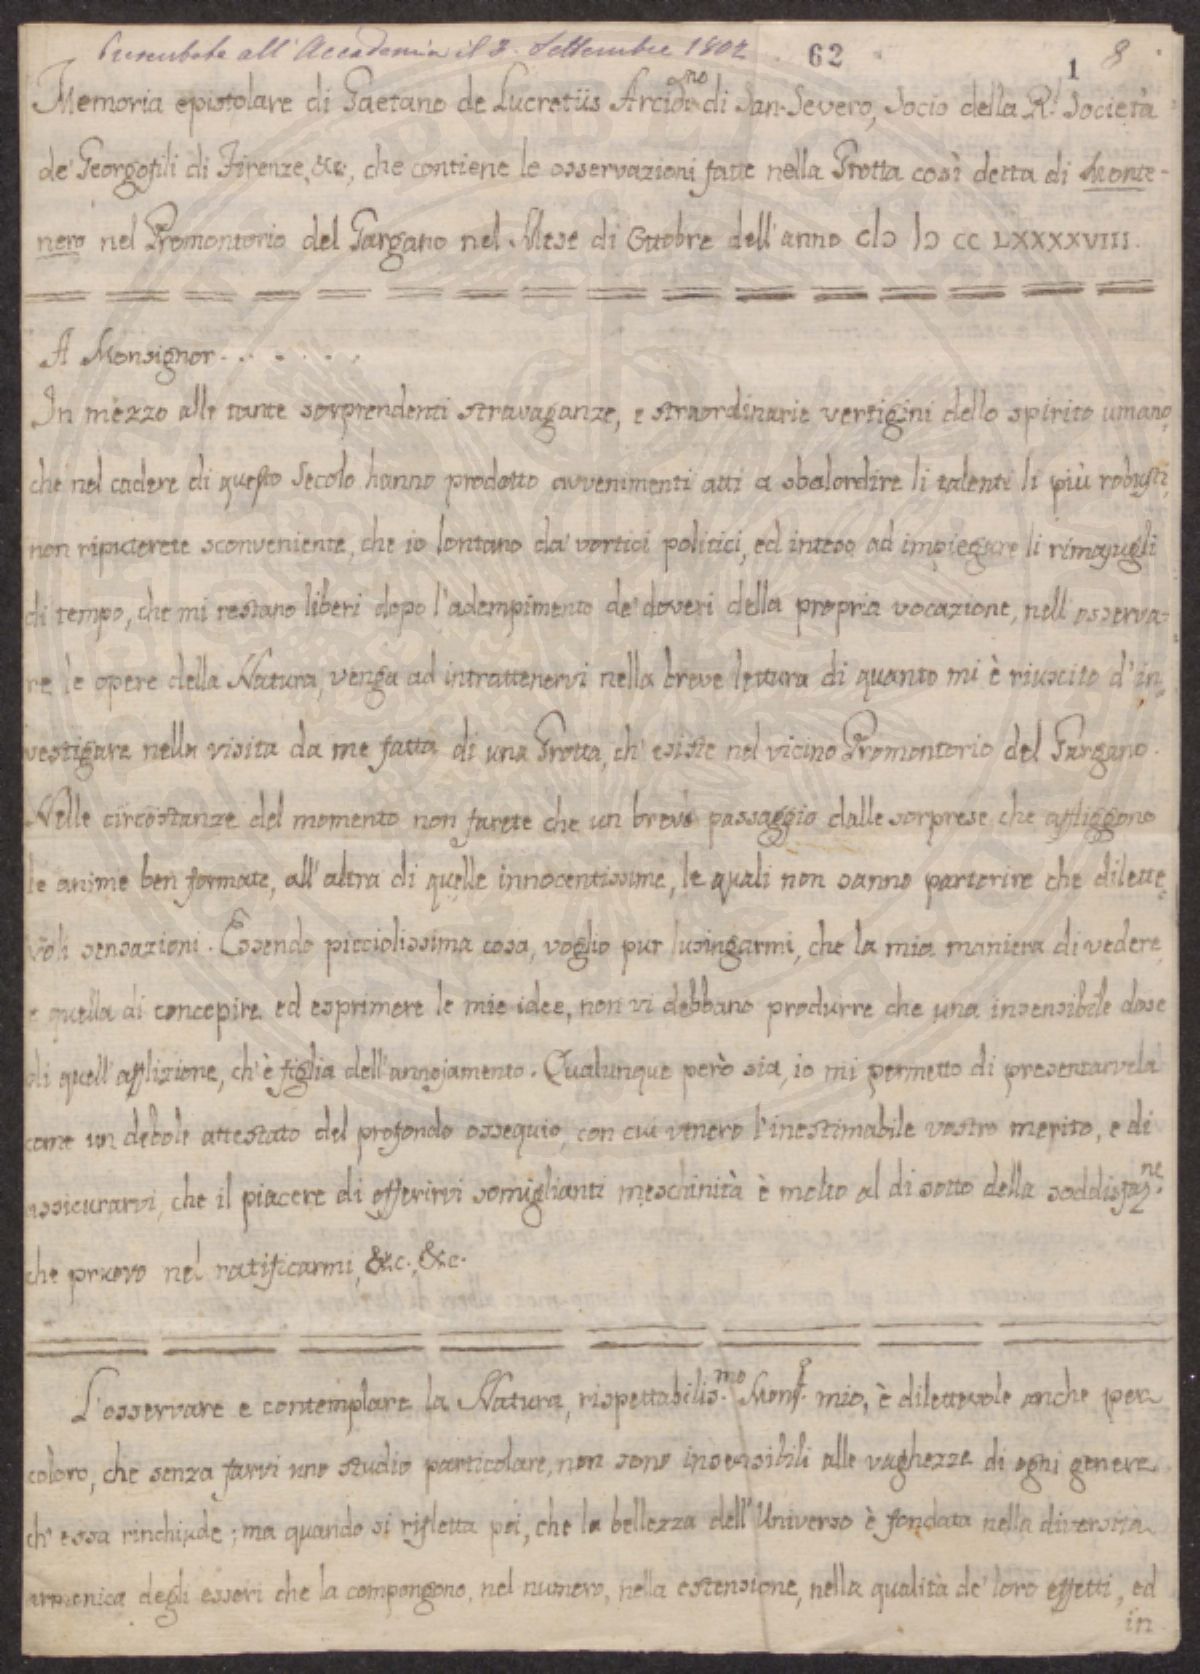 Presentata all'Accademia il 3. Settembre 1802
62
1
8
Memoria epistolare di Gaetano de Lucretiis Arcid.no di San-Severo, Socio della R.l Società
de' Georgofili di Firenze, &c., che contiene le osservazioni fatte nella Grotta così detta di Monte-
nero nel Promontorio del Gargano nel Mese di Ottobre dell'anno CIↃ IↃ CC LXXXXVIII.
A Monsignor . . . . . . .
In mezzo alle tante sorprendenti stravaganze, e straordinarie vertigini dello spirito umano,
che nel cadere di questo Secolo hanno prodotto avvenimenti atti a sbalordire li talenti li più robusti,
non riputerete sconveniente, che io lontano da' vortici politici, ed inteso ad impiegare li rimasugli
di tempo, che mi restano liberi dopo l'adempimento de' doveri della propria vocazione, nell'osserva-
re le opere della Natura, venga ad intrattenervi nella breve lettura di quanto mi è riuscito d'in-
vestigare nella visita da me fatta di una Grotta, ch'esiste nel vicino Promontorio del Gargano.
Nelle circostanze del momento non farete che un breve passaggio dalle sorprese che affliggono
le anime ben formate, all'altra di quelle innocentissime, le quali non sanno partorire che dilette-
voli sensazioni. Essendo picciolissima cosa, voglio pur lusingarmi, che la mia maniera di vedere,
e quella di concepire ed esprimere le mie idee, non vi debbano produrre che una insensibile dose
di quell'afflizione, ch'è figlia dell'annojamento. Qualunque però sia, io mi permetto di presentarvela
come un debole attestato del profondo ossequio, con cui venero l'inestimabile vostro merito, e di
assicurarvi, che il piacere di offerirvi somiglianti meschinità è molto al di sotto della soddisfaz.ne
che pruovo nel ratificarmi, &c., &c.
L'osservare e contemplare la Natura, rispettabilis.mo Mons.r mio, è dilettevole anche per
coloro, che senza farvi uno studio particolare, non sono insensibili alle vaghezze di ogni genere
ch'essa rinchiude; ma quando si rifletta poi, che la bellezza dell'Universo è fondata nella diversità
armonica degli esseri che la compongono, nel numero, nella estensione, nella qualità de' loro effetti, ed
in